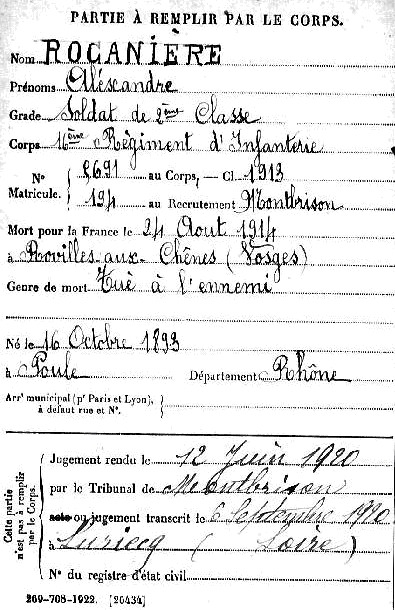 PARTIE À REMPLIR PAR LE CORPS.
Nom ROCANIÈRE
Prénoms Aléxcandre
Grade Soldat de 2ème Classe
Corps 16ème Règiment d'Infanterie
N° 8691 au Corps. — Cl. 1913
Matricule. 194 au Recrutement Montbrison
Mort pour la France le 24 Aout 1914
à Rovilles-aux-Chênes (Vosges)
Genre de mort Tuè à l'ennemi
Né le 16 Octobre 1893
à Poule Département Rhône
Arrt municipal (pr Paris et Lyon), à défaut rue et N°.
Cette partie n'est pas à remplir par le Corps.
Jugement rendu le 12 Juin 1920
par le Tribunal de Montbrison
acte ou jugement transcrit le 6 Septembre 1920
à Luriecq (Loire)
N° du registre d'état civil
269-708-1922. [26434]